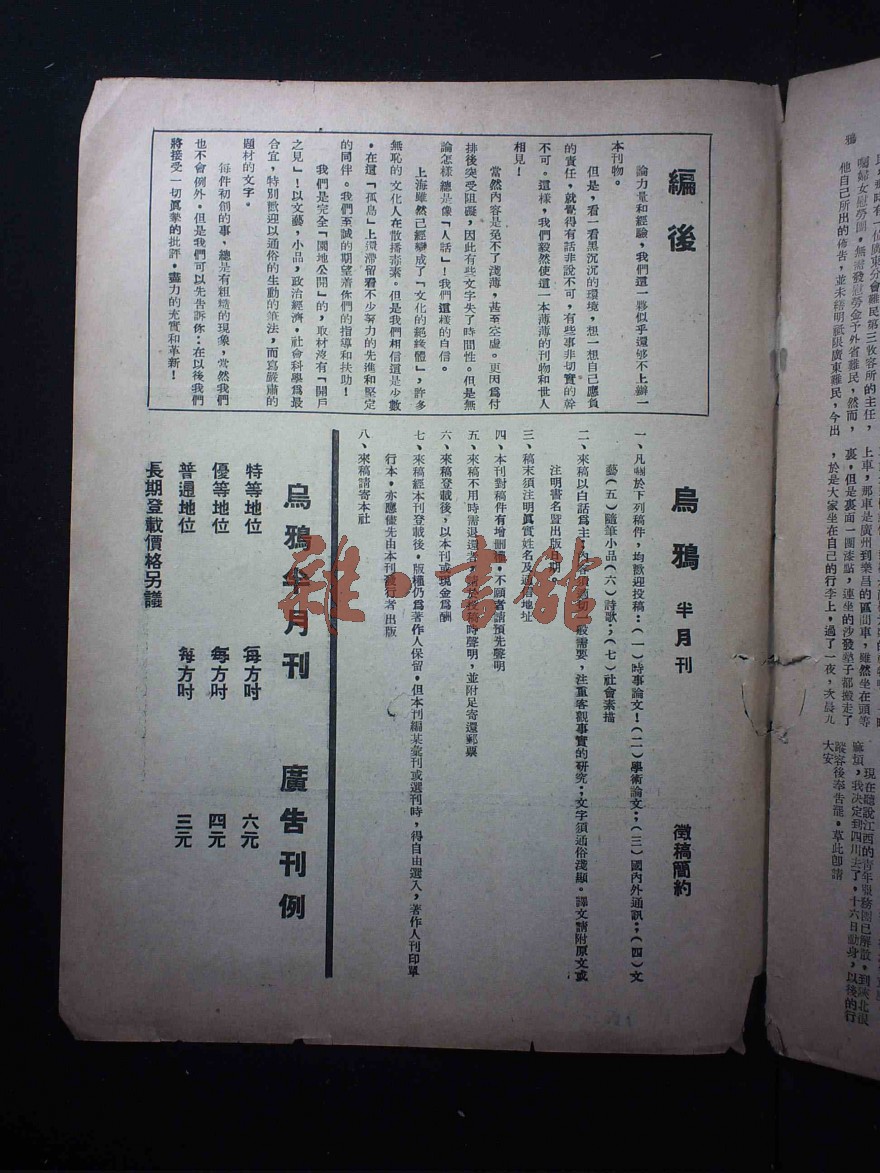 編後
論力量和經驗，我們這一夥似乎還够不上辦一
本刊物。
但是，看一看黑沉沉的環境，想一想自己應負
的責任，就覺得有話非說不可，有些事非切實的幹
不可。這樣，我們毅然使這一本薄薄的刊物和世人
相見！
當然內容是免不了淺薄，甚至空虛。更因爲付
排後突受阻礙，因此有些文字失了時間性。但是無
論怎樣總是像「人話」！我們這樣的自信。
上海雖然已經變成了「文化的絕緣體」，許多
無恥的文化人在散播毒素。但是我們相信還是少數
。在這「孤島」上還滯留着不少努力的先進和堅定
的同伴。我們至誠的期望着你們的指導和扶助！
我們是完全「園地公開」的，取材沒有「門戶
之見」！以文藝，小品，政治經濟，社會科學爲最
合宜，特別歡迎以通俗的生動的筆法，而寫嚴肅的
題材的文字。
每件初創的事，總是有粗糙的現象，當然我們
也不會例外。但是我們可以先告訴你：在以後我們
將接受一切眞摯的批評。盡力的充實和革新！
烏鴉 半月刊 徵稿簡約
一、凡關於下列稿件，均歡迎投稿：（一）時事論文！（二）學術論文；（三）國內外通訊；（四）文
藝（五）隨筆小品（六）詩歌；（七）社會素描
二、來稿以白話爲主；內容須適切一般需要，注重客觀事實的研究；文字須通俗淺顯。譯文請附原文或
注明書名暨出版日期。
三、稿末須注明眞實姓名及通訊地址
四、本刊對稿件有增刪權。不願者請預先聲明
五、來稿不用時需退還者，請於投稿時聲明，並附足寄還郵票
六、來稿登載後，以本刊或現金爲酬
七、來稿經本刊登載後。版權仍爲著作人保留。但本刊編某彙刊或選刊時，得自由選入，著作人刊印單
行本，亦應儘先由本刊發行者出版
八、來稿請寄本社
烏鴉半月刊 廣告刊例
特等地位 每方吋 六元
優等地位 每方吋 四元
普通地位 每方吋 三元
長期登載價格另議
雜·書館
鴉
囑婦女慰勞團，無需發慰勞金予外省難民，然而，
他自己所出的佈告，並未聲明祇限廣東難民，今出
上車，那車是廣州到樂昌的區間車，雖然坐在頭等
裏，但是裏面一團漆黑，連坐的沙發墊子都搬走了
，於是大家坐在自己的行李上，過了一夜，次晨九
現在聽說江西的青年服務團已解散。到陝北很
麻煩，我決定到四川去了，十六日動身，以後的行
蹤容後奉告罷。草此卽請
大安